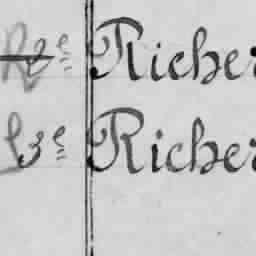 2e Richer
3e Richer